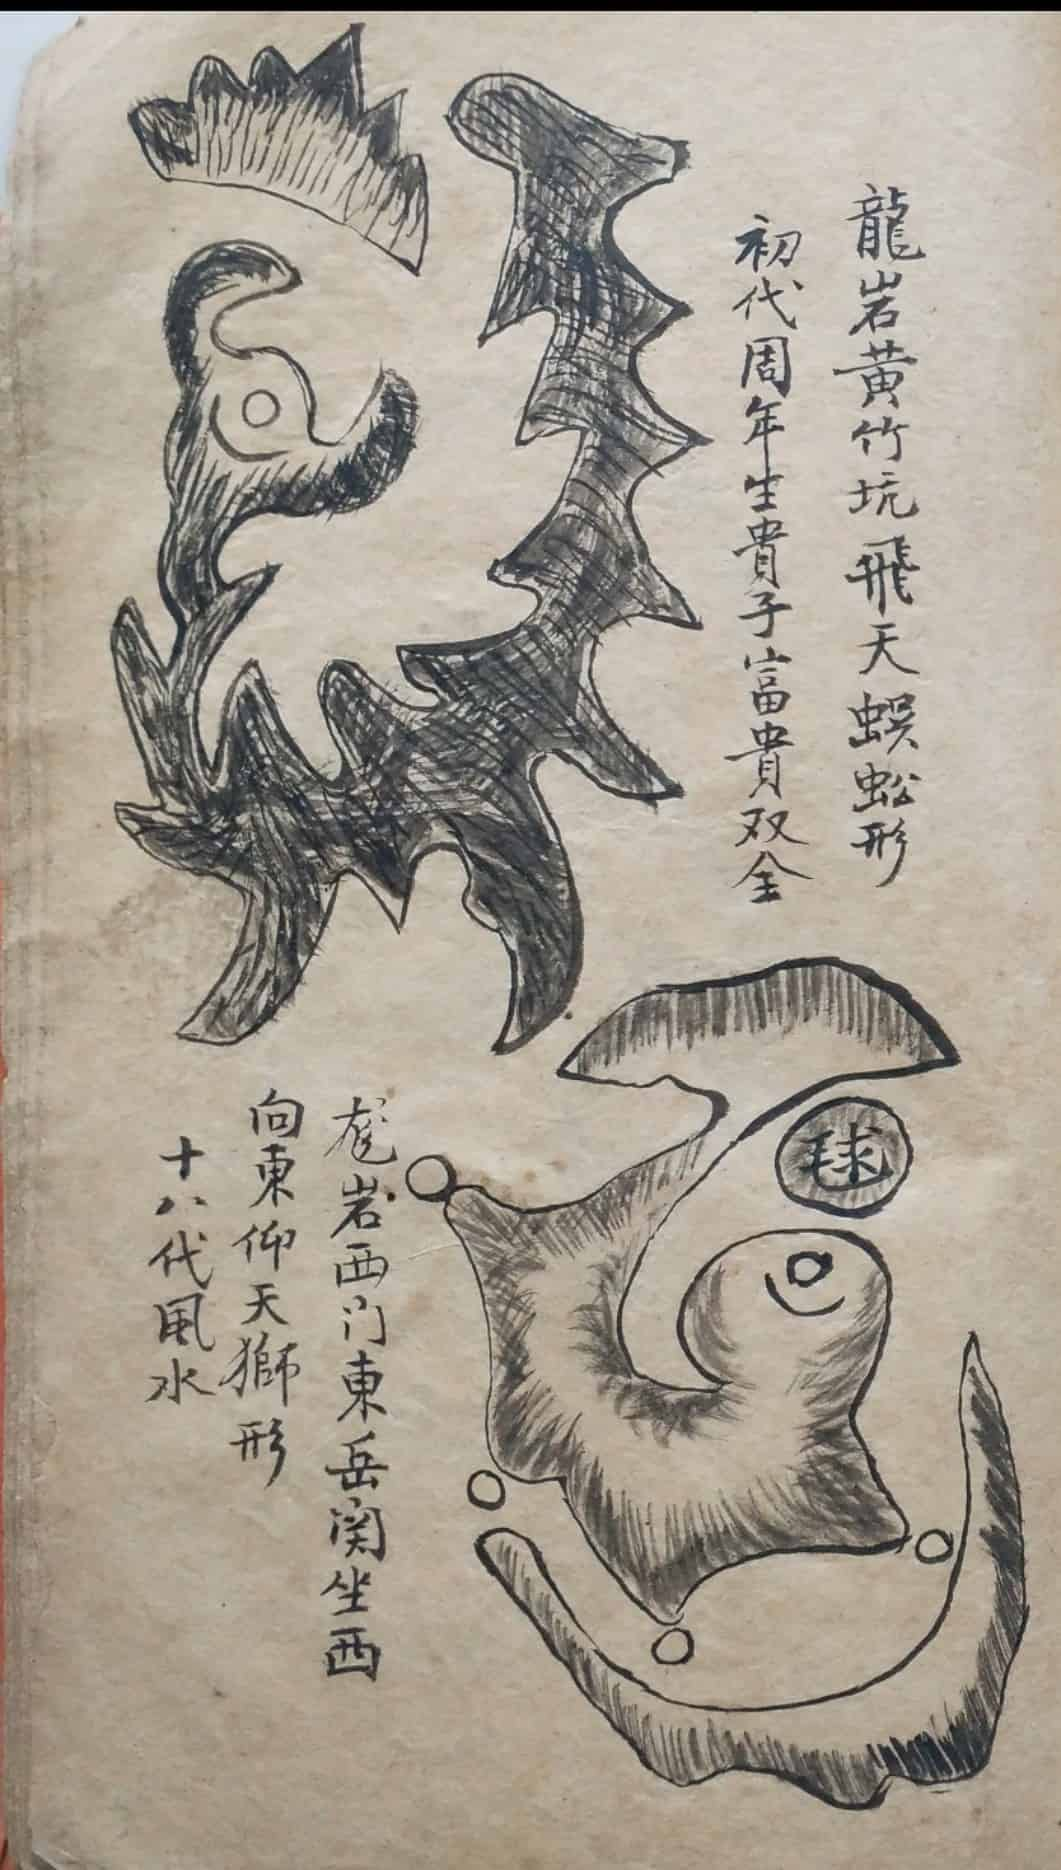 龍岩黄竹坑飛天蜈蚣形
初代周年生貴子富貴双全
球
岩西门東岳関坐西
向東仰天獅形
十八代風水